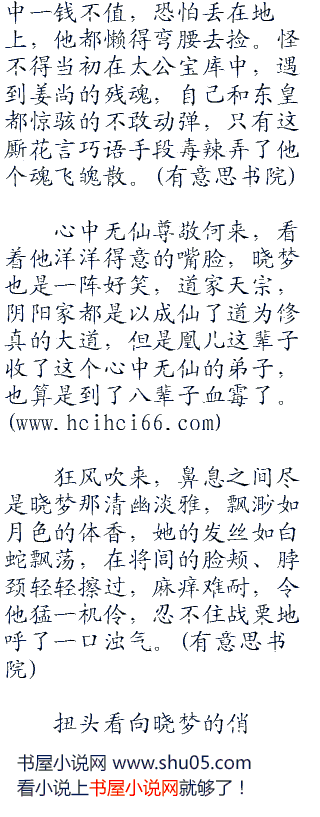 中一钱不值，恐怕丢在地
上，他都懒得弯腰去捡。怪
不得当初在太公宝库中，遇
到姜尚的残魂，自己和东皇
都惊骇的不敢动弹，只有这
厮花言巧语手段毒辣弄了他
个魂飞魄散。(有意思书院)
心中无仙尊敬何来，看
着他洋洋得意的嘴脸，晓梦
也是一阵好笑，道家天宗，
阴阳家都是以成仙了道为修
真的大道，但是凰儿这辈子
收了这个心中无仙的弟子，
也算是到了八辈子血霉了。
(www.hcihci66.com)
狂风吹来，鼻息之间尽
是晓梦那清幽淡雅，飘渺如
月色的体香，她的发丝如白
蛇飘荡，在将闾的脸颊、脖
颈轻轻擦过，麻痒难耐，令
他猛一机伶，忍不住战栗地
呼了一口浊气。(有意思书
院)
扭头看向晓梦的俏
书屋小说网 www.shu05.com
看小说上书屋小说网就够了！